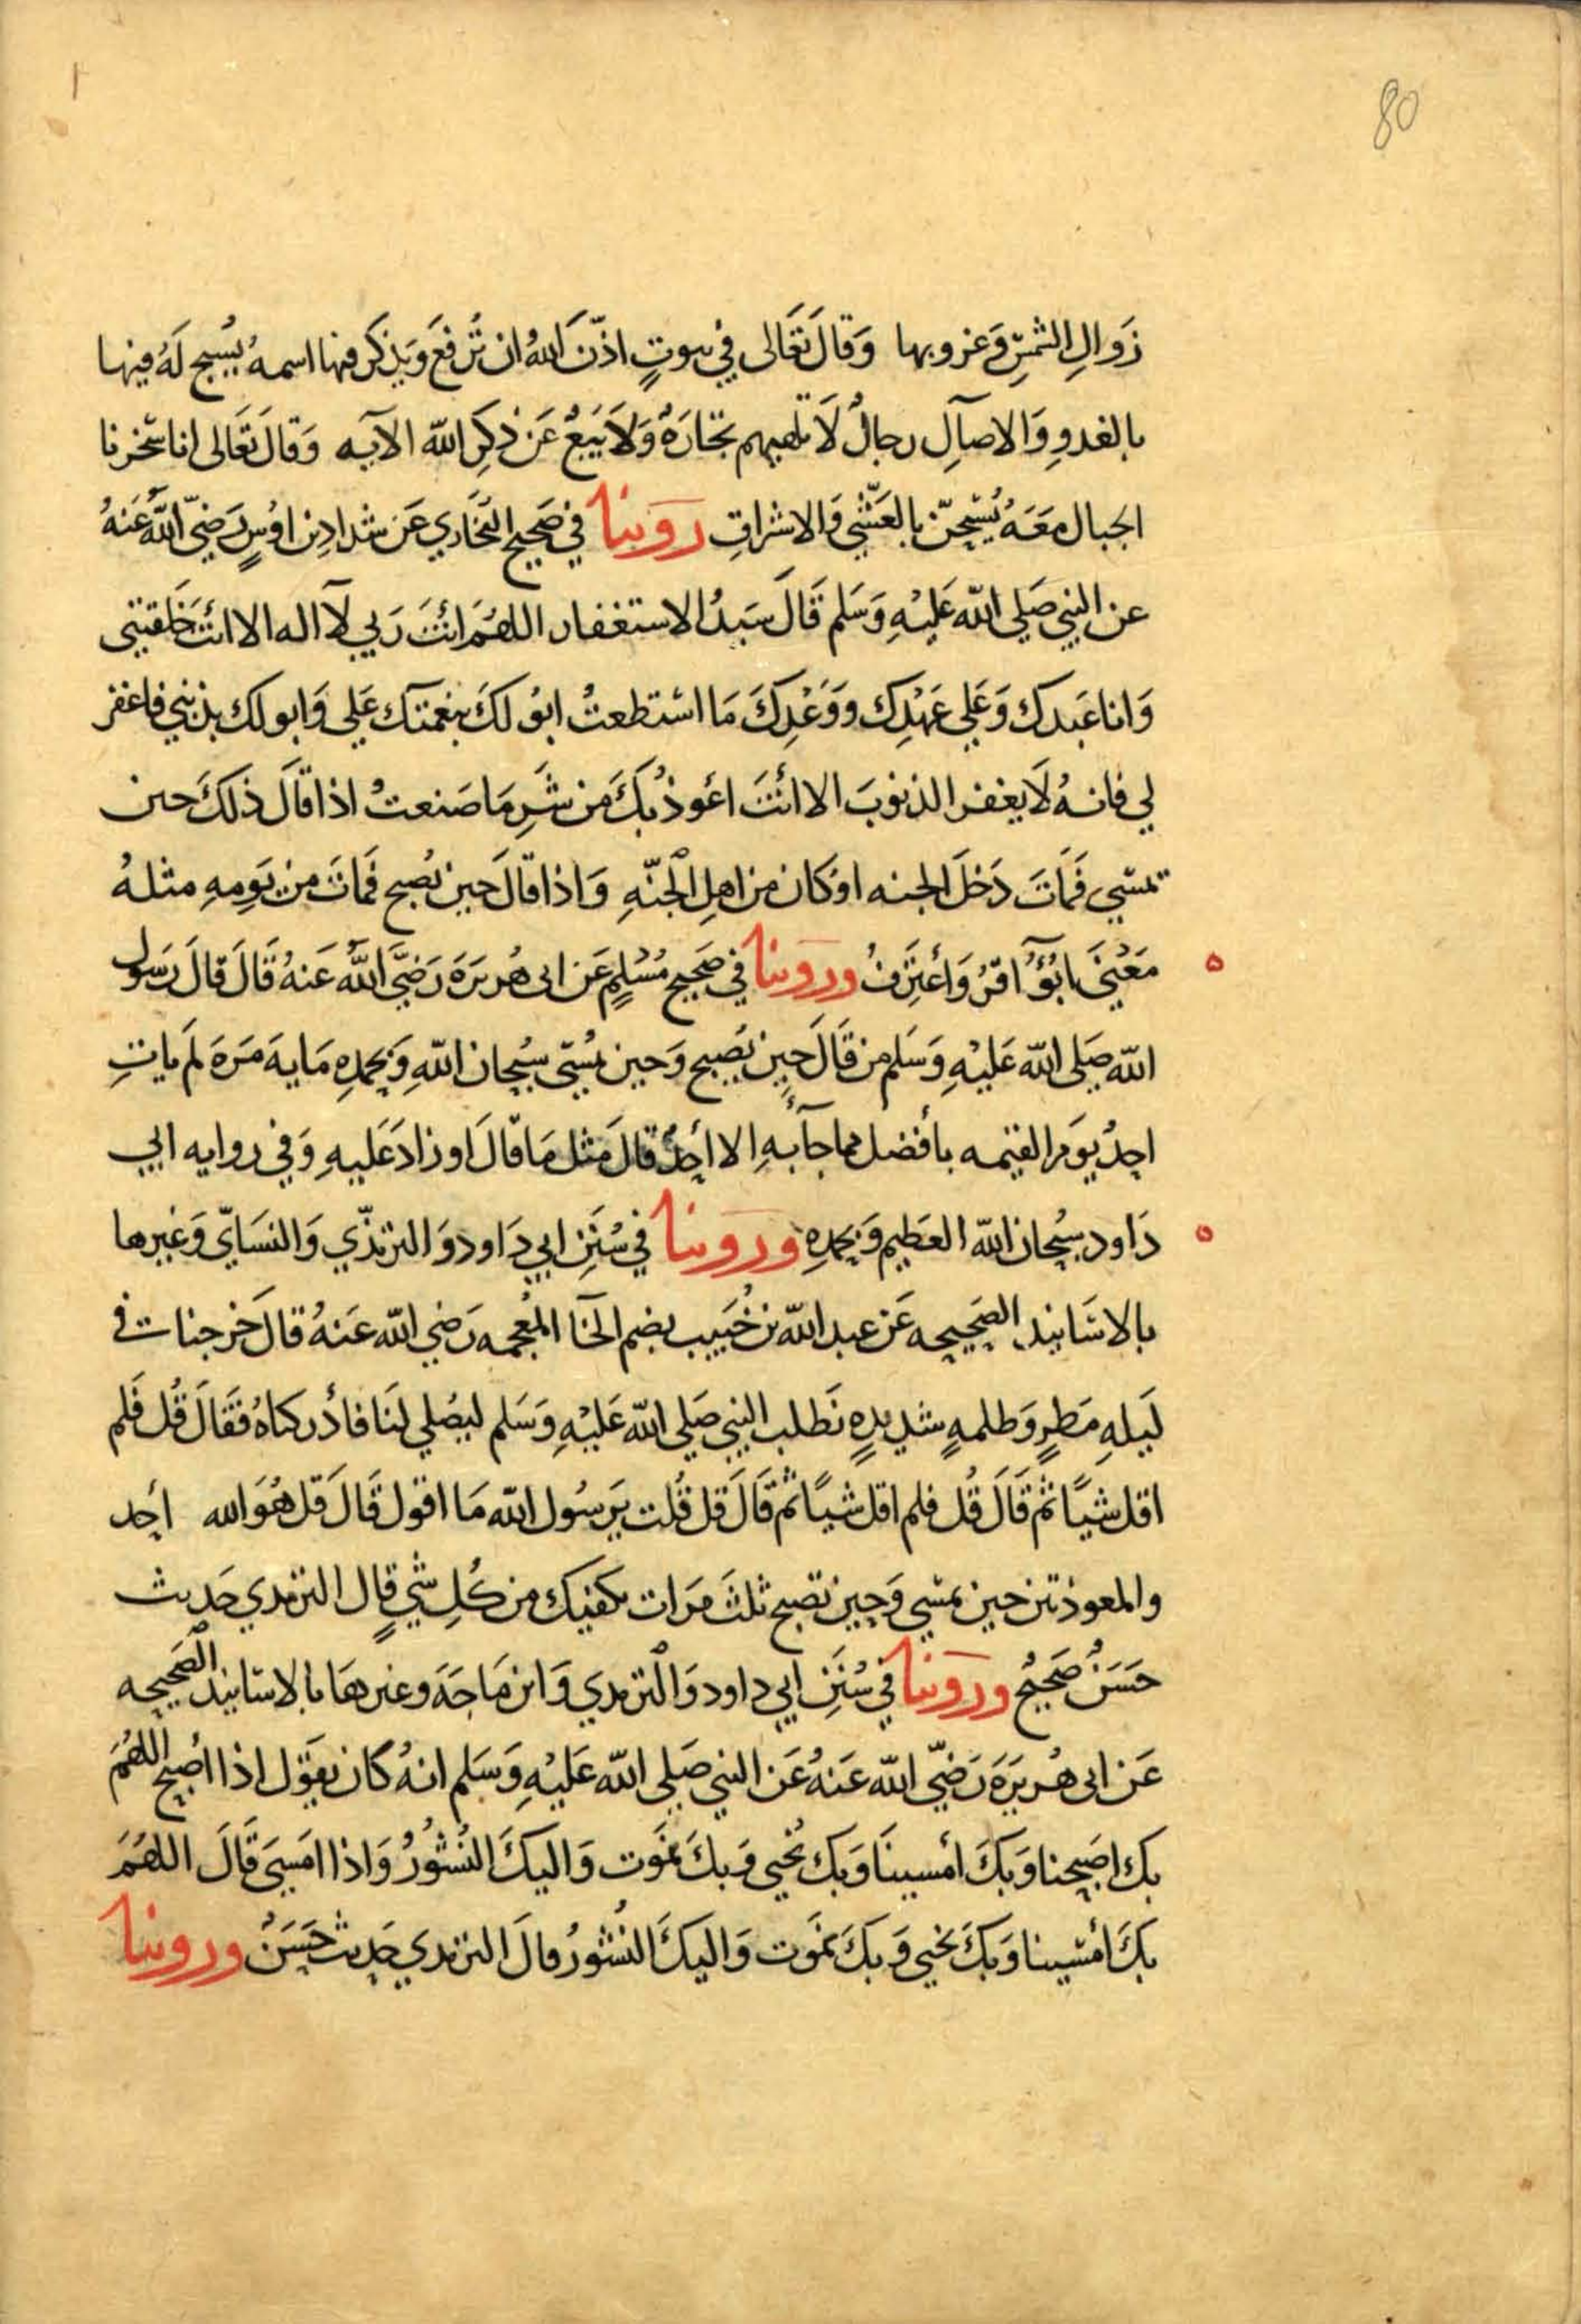 80
زَوالِ الشمسِ وَغروبها وَقالَ تعَالى في بيوتٍ اذنَ اللهُ ان تُرفعَ وَيذكر فيها اسمهُ يُسبح لَهُ فيها
بالغدوِ وَالاصآلِ رجالٌ لَا تلهيهم تجارَةٌ وَلَا بَيَعٌ عَن ذكرِ الله الآيه وَقالَ تعَالى انا سَخرنا
الجبال معَهُ يُسَبحنَ بالعَشي وَالاشراقِ رَوَينا في صَحيح البُخَاري عَن شدادِ بن اوُسٍ رَضيَ اللهُ عَنهُ
عن النبي صَلى الله عَليْهِ وَسَلم قَالَ سَيدُ الاستغفار اللهُمَ انتَ رَبي لآ اله الا انتَ خَلقتني
وَانا عَبدك وَعَلي عَهْدِك ووَعْدِكَ مَا استطعتُ ابوُ لكَ بنعمتك عَلي وَابو لك بذنبي فاغفر
لي فانهُ لَا يغفر الذنوبَ الا انْتَ اعَوذ بكَ من شَرِ مَا صَنعتُ اذا قالَ ذلكَ حين
تمسي فمَاتَ دَخلَ الجنه اوْ كان من اهلِ الجنّهِ وَاذا قالَ حين يُصبح فمَاتَ من يَومِهِ مثلهُ
مَعْنَى ابُوُٓ اقرُ وَأعتَرفُ ورَوَينا في صَحيح مُسْلمٍ عَن ابى هُريرَةَ رَضيَ اللهُ عَنهُ قَالَ قالَ رَسول
الله صَلى الله عَليْهِ وَسَلم من قَالَ حين يُصبح وَحين يمُسى سُبحان اللهِ وَبحمدِهِ مَايهَ مَرَة لَم ياتِ
احدٌ يوَم القيمه بأفضل مما جآءَ بهِ الا أحدٌ قالَ مثل مَا قالَ او زادَ عَليهِ وَفي روايه ابي
دَاود سُبحان الله العَظيم وَبحمدِهِ ورَوينا في سُنَنِ ابي دَاود وَالترمذي وَالنسَاي وَغيرها
بالاسَانيد الصَحيحه عَن عبد الله بن خُبَيب بضم الخا المُعجمه رَضي الله عَنهُ قالَ خرجنات في
لَيلهِ مَطرٍ وَظلمهٍ شديدهٍ نَطلب النبي صَلى الله عَليْهِ وَسَلم ليصُلي لنَا فادْركناهُ فقَالَ قُل فَلم
اقل شيًا ثم قَالَ قُل فلم اقل شيًا ثم قالَ قل قُلت يَرسُول الله مَا اقول قَالَ قل هُوَ الله احَد
والمعوذتين حين تمسي وَحين تصبح ثلثَ مَرَات يكفيك من كُلِ شيٍ قال الترمدي حَديث
حَسَنٌ صَحيحٌ ورَوَينا في سُنَنِ ابي داود وَالترمدي وَابن مَاجَهَ وغيرهَا بالاسَانيد الصَحيحه
عَن ابى هُريرَةَ رَضيَ الله عَنهُ عَن النبي صَلى الله عَليْهِ وَسَلم انهُ كان يقَول اذا اصُبح اللهُمَ
بك اصَبحنا وَبكَ أمسينَا وَبك نُحيى وَبكَ نموَت وَاليكَ النُشُورُ وَاذا امسَى قَالَ اللهُمَ
بكَ أمسينا وَبكَ نحيى وَبكَ نموَت وَاليكَ النُشُورُ قالَ الترمدي حَديث حَسَنٌ وروينا